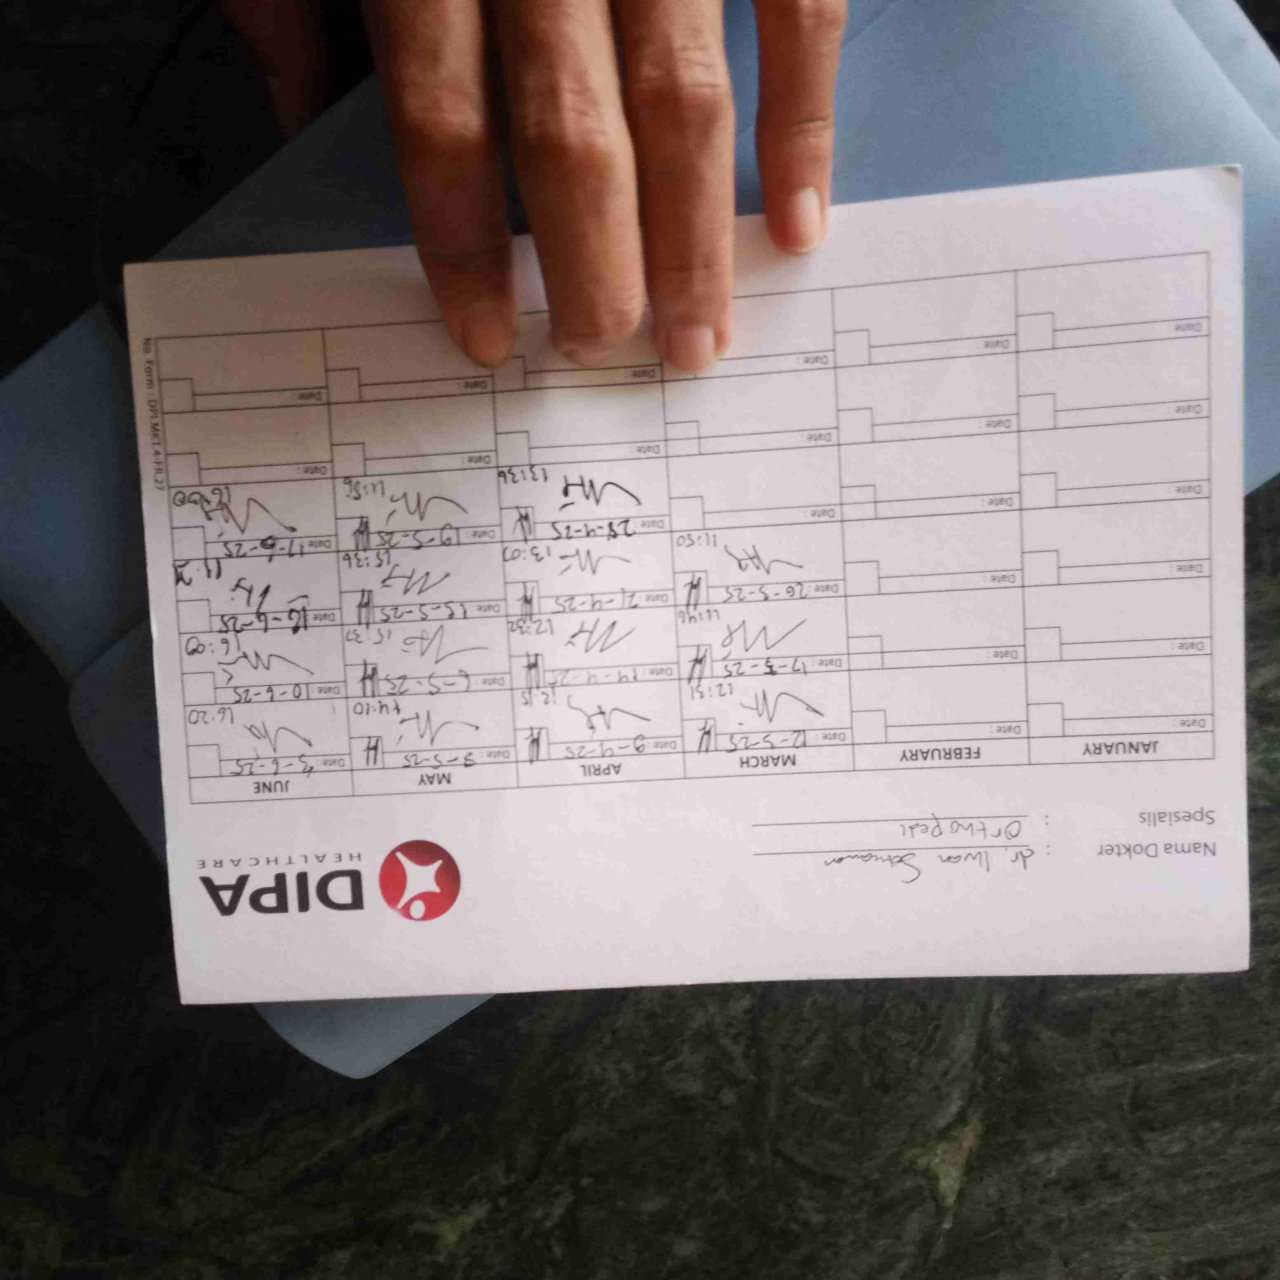 DIPA
HEALTHCARE
Nama Dokter : dr. Iwan Setiawan
Spesialis : Orthopedi
JANUARY FEBRUARY MARCH APRIL MAY JUNE
Date : Date : Date : 12-3-25 Date : 9-4-25 Date : 3-5-25 Date : 5-6-25
12:31 12:15 14:10 16:20
Date : Date : Date : 17-3-25 Date : 14-4-25 Date : 6-5-25 Date : 10-6-25
11:46 12:32 15:32 16:00
Date : Date : Date : 26-3-25 Date : 21-4-25 Date : 15-5-25 Date : 16-6-25
11:50 13:07 15:36
Date : Date : Date : Date : 28-4-25 Date : 19-5-25 Date : 17-6-25
13:36 11:56 16:00
Date : Date : Date : Date : Date : Date :
Date : Date : Date : Date : Date : Date :
No. Form : DPI-MKT-4-FR.27